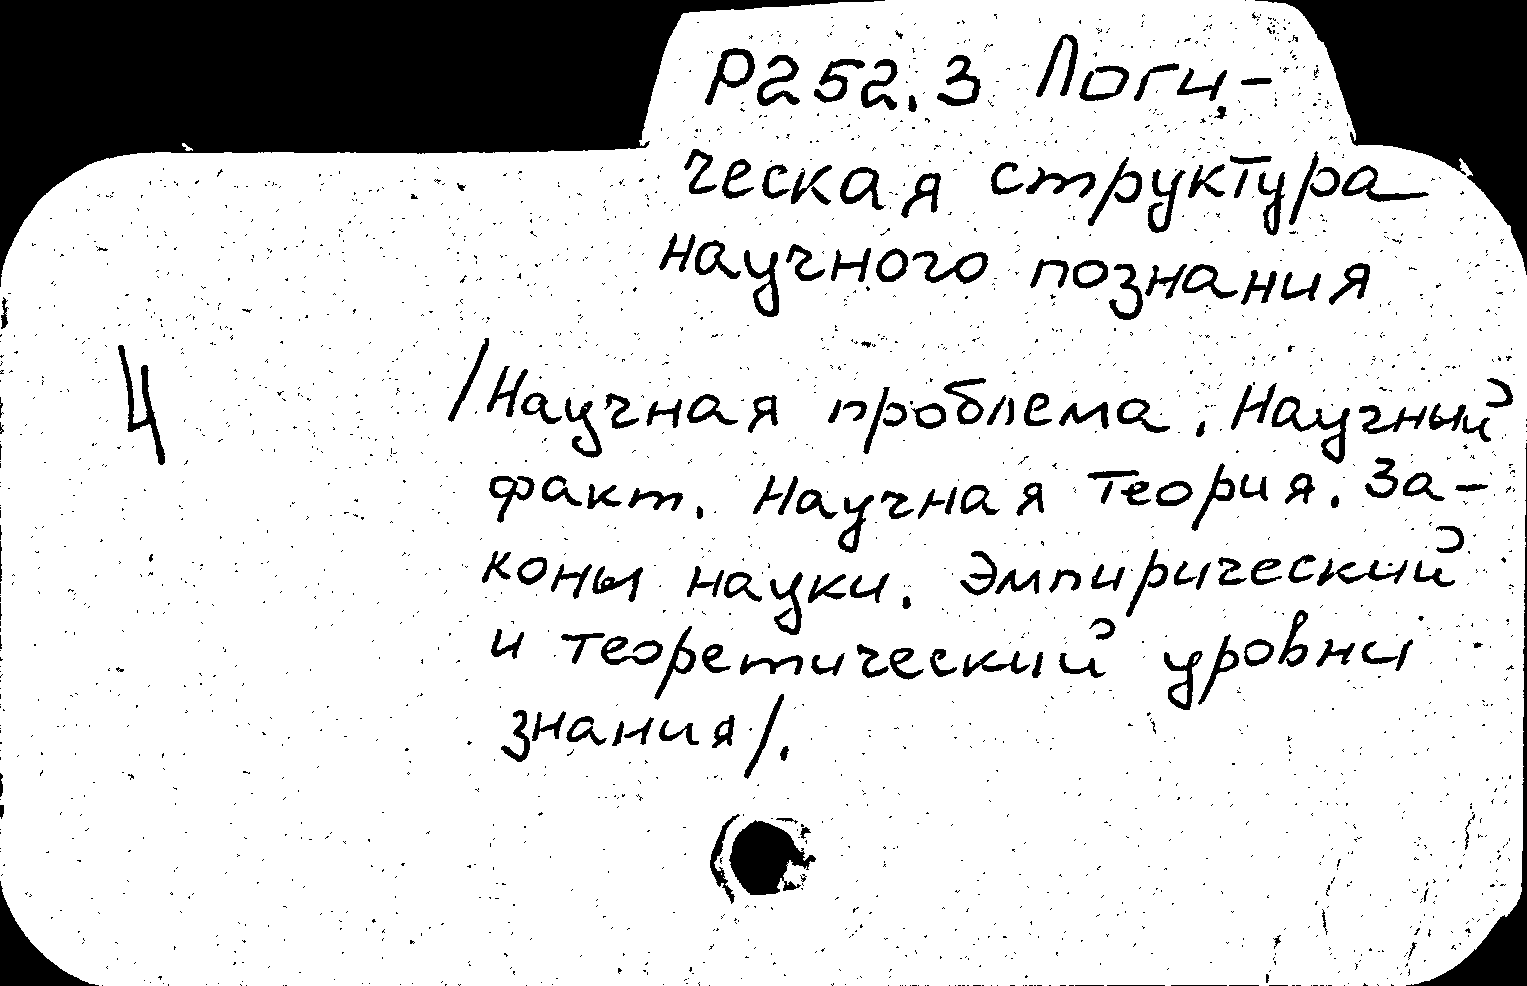 Р252.3 Логи-
ческая структура
научного познания
4
/Научная проблема. Научный
факт. Научная теория. За-
коны науки. Эмпирический
и теоретический уровни
знания/.